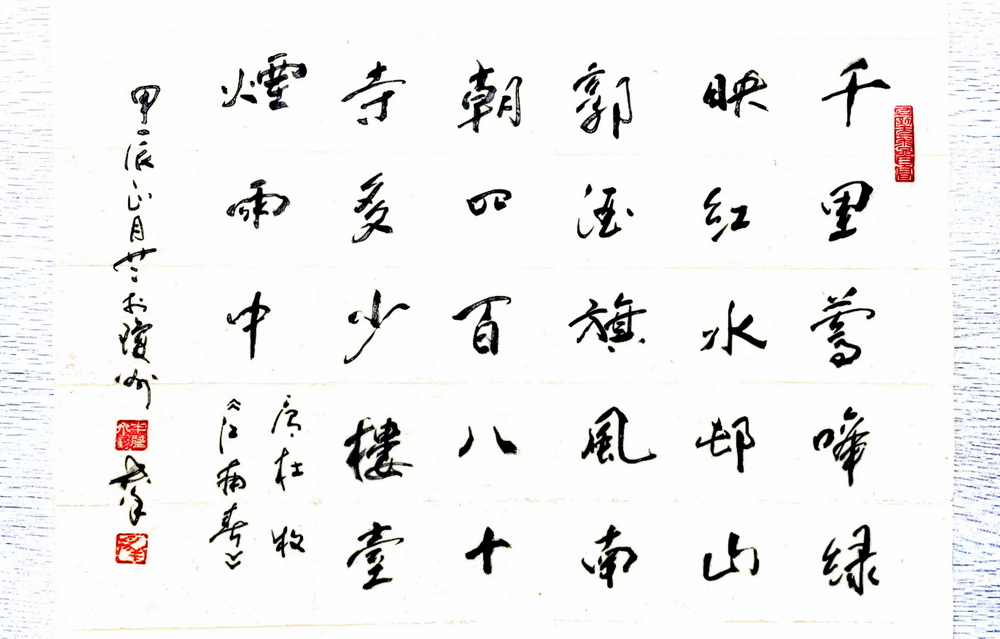 千里莺啼绿
映红水邨山
郭酒旗風南
朝四百八十
寺多少樓臺
煙雨中
唐杜牧
《江南春》
甲辰正月廿二於瓊州